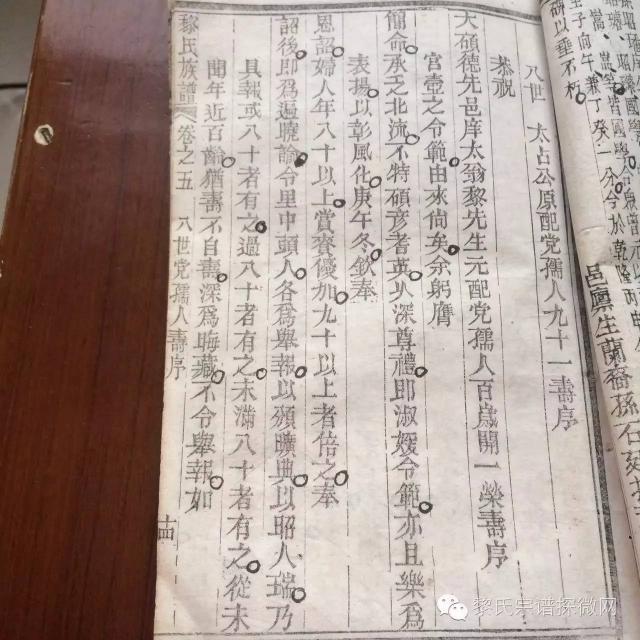 八世　太占公原配党孺人九十一壽序
恭祝
大碩德先邑庠太翁黎先生元配党孺人百歲開一榮壽序
宮壼之令範由來尚矣余躬膺
簡命承乏北流不特碩彥耆英以深尊禮即淑媛令範亦且樂為
表揚以彰風化庚午冬欽奉
恩詔婦人年八十以上賞賚優加九十以上者倍之奉
詔後即為遍曉諭令里中頭人各為舉報以頒曠典以昭人瑞乃
具報或八十者有之過八十者有之未滿八十者有之從未
聞年近百齡猶壽不自壽深為晦藏不令舉報如
黎氏族譜　卷之五　八世党孺人壽序　十四
研以垂不朽
邑廩生蘭裔孫石
黎氏宗谱探微网